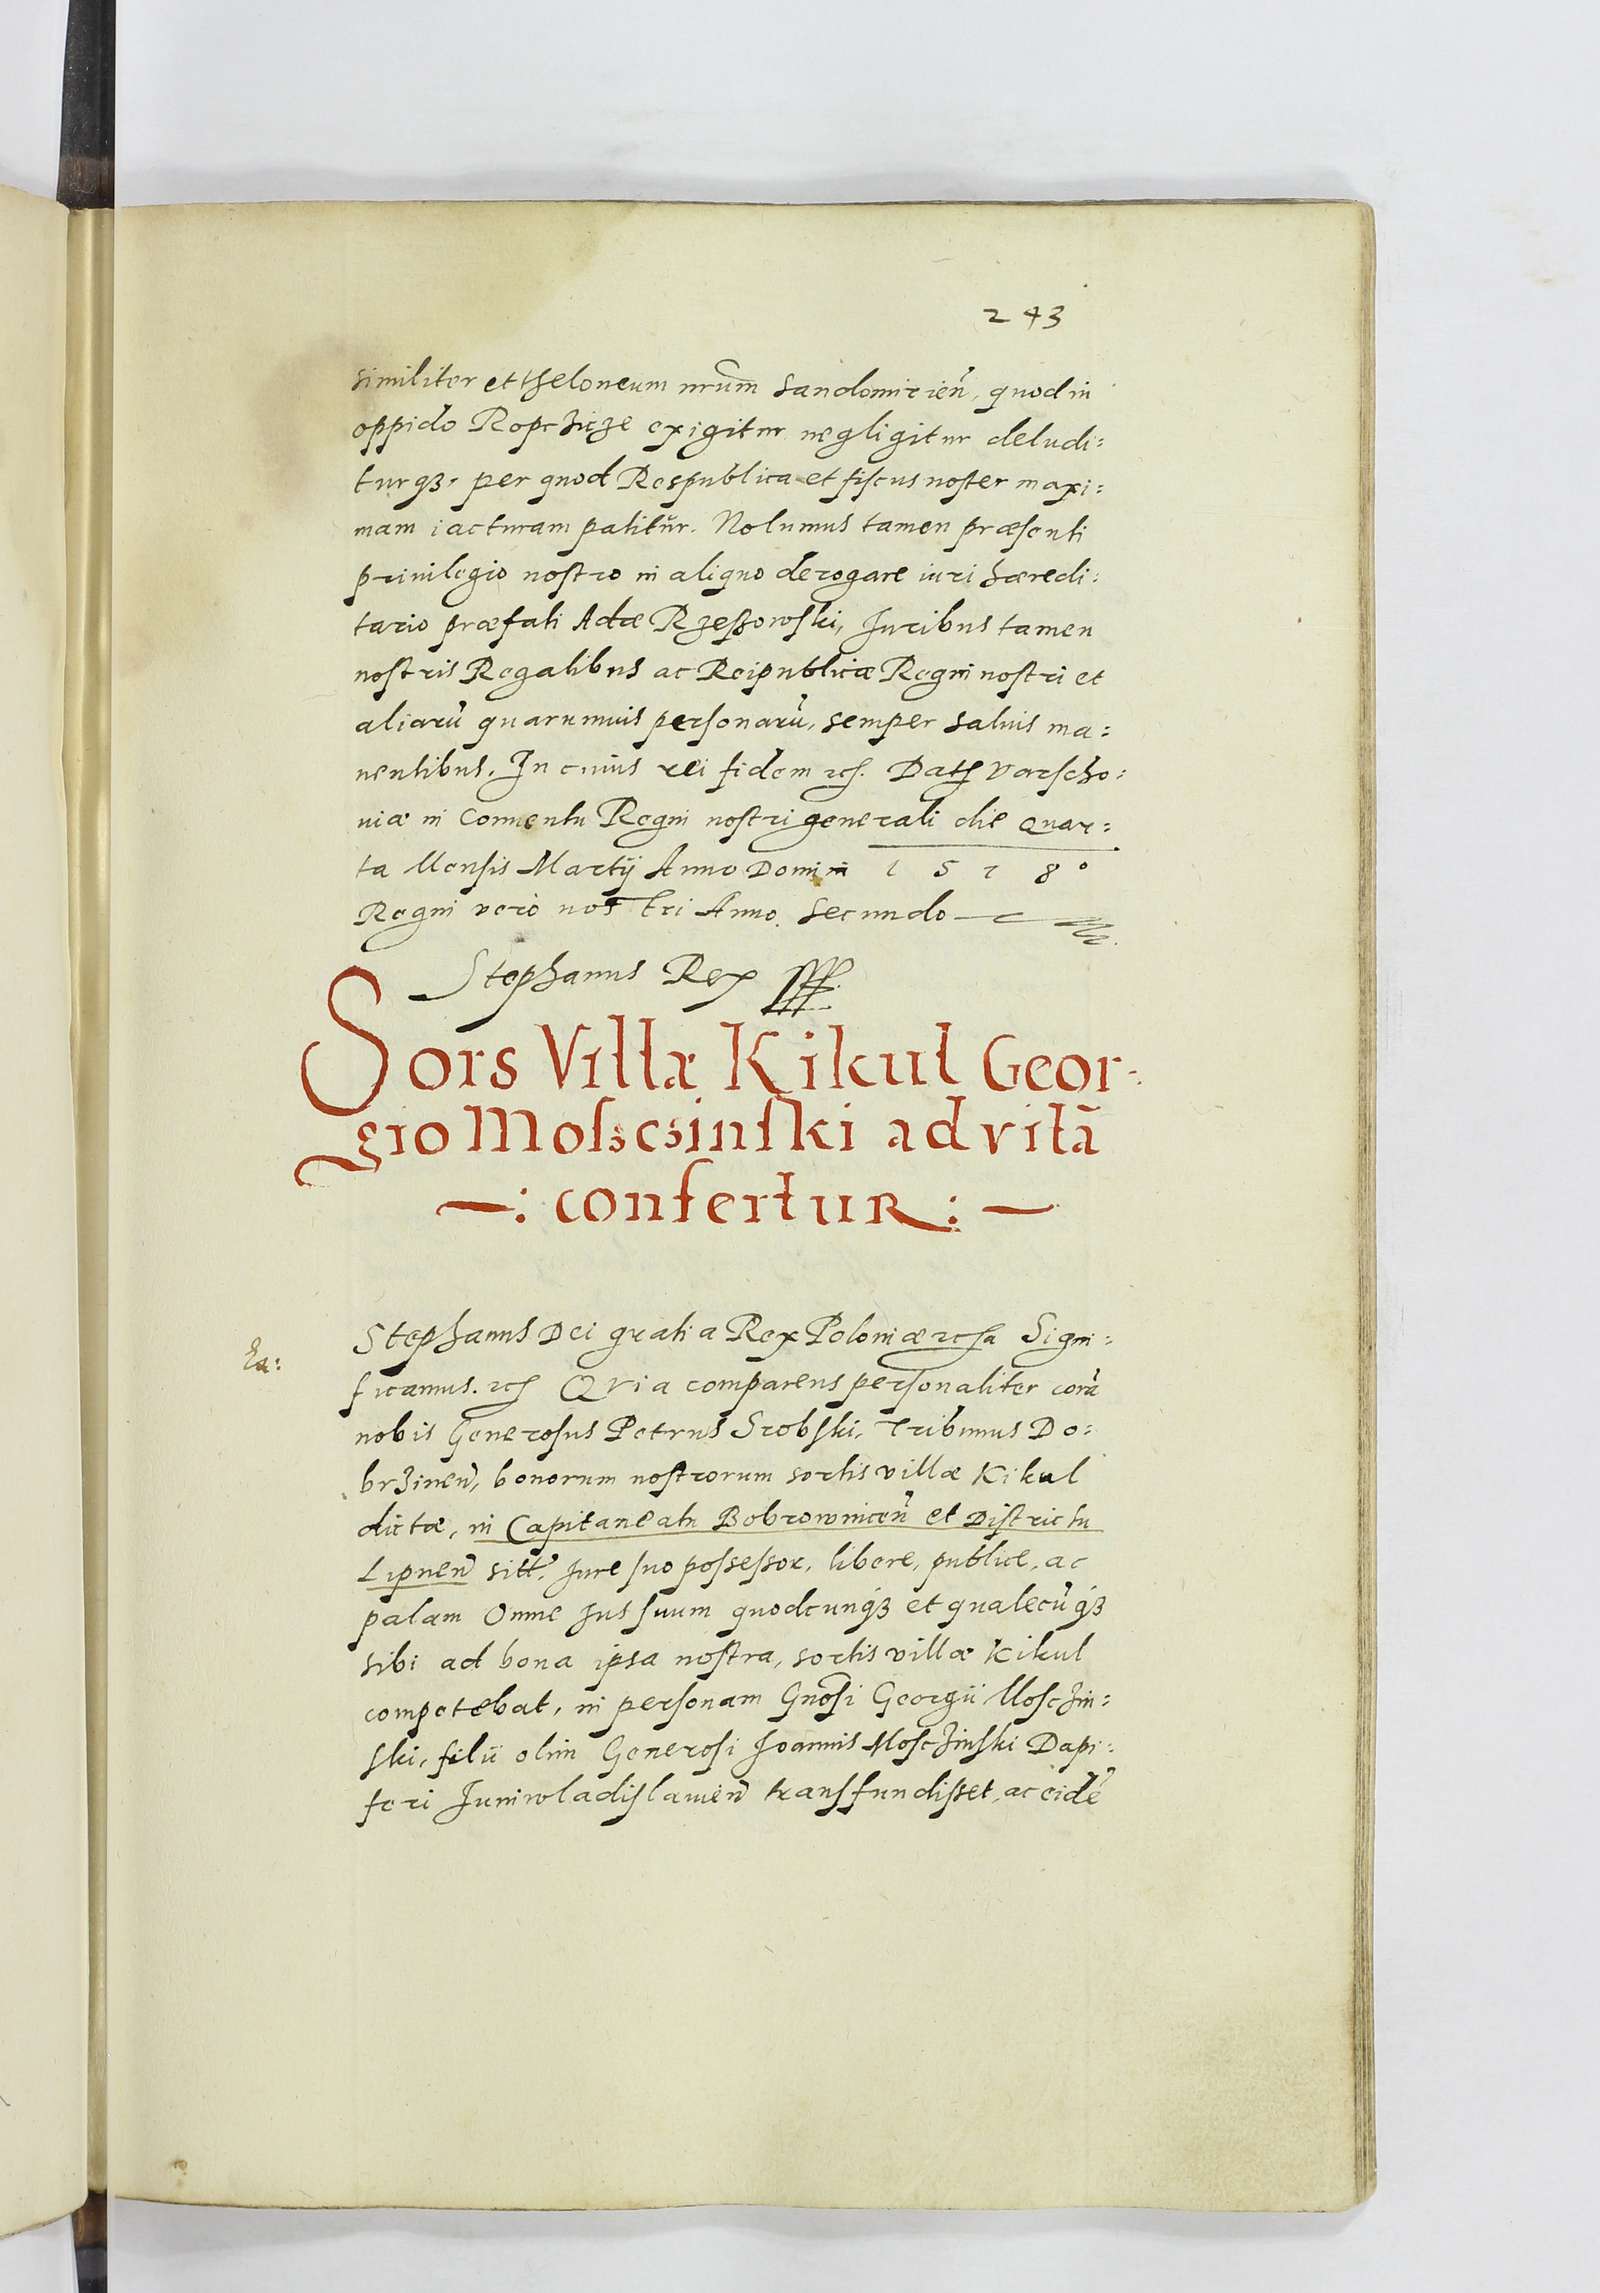 243
similiter et theloneum nrum Sandomirien̄, quod in
oppido Ropchicze exigitur negligitur deludi:
turqȝ, per quod Respublica et fiscus noster maxi:
mam iacturam patitur. Nolumus tamen præsenti
priuilegio nostro in aliquo derogare iuri hæredi:
tario præfati Adæ Rzeszowski, Juribus tamen
nostris Regalibus ac Reipublicæ Regni nostri et
aliarū quarumuis personarū, semper saluis ma:
nentibus. In cuius rei fidem etc. Dat Varscho:
uiæ in Conuentu Regni nostri generali die Quar:
ta Mensis Martij Anno Domini 1578°
Regni vero nostri Anno secundo
Stephanus Rex
Sors Villæ Kikul Geor:
gio Moszcsinski ad vitā
—: confertur :—
Stephanus Dei gratia Rex Poloniæ etc Signi:
ficamus. etc Quia comparens personaliter corā
nobis Generosus Petrus Srobski, Tribunus Do:
brzinen̄, bonorum nostrorum sortis villæ Kikul
dictæ, in Capitaneatu Bobrownicen̄ et Districtu
Lipnen̄ sitt. Jure suo possessor, libere, publice, ac
palam Omne Jus suum quodcunqȝ et qualecūqȝ
sibi ad bona ipsa nostra, sortis villæ Kikul
competebat, in personam Gnosi Georgii Moschin:
ski, filii olim Generosi Joannis Moschinski Dapi:
feri Juniwladislauien̄ transfundisset, ac eidē